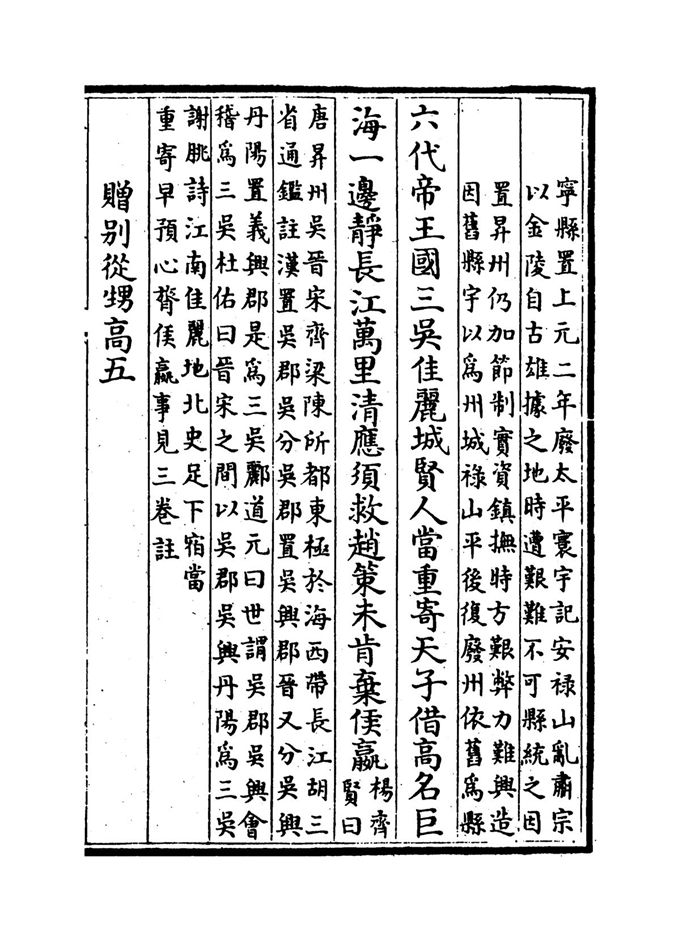 寧縣置上元二年廢太平寰宇記安禄山亂肅宗
以金陵自古雄據之地時遭艱難不可縣統之因
置昇州仍加節制實資鎮撫時方艱弊力難興造
因舊縣宇以為州城禄山平後復廢州依舊為縣
六代帝王國三吳佳麗城賢人當重寄天子借高名巨
海一邊靜長江萬里清應須救趙策未肯棄侯嬴
楊齊
賢曰
唐昇州吳晉宋齊梁陳所都東極於海西帶長江胡三
省通鑑註漢置吳郡吳分吳郡置吳興郡晉又分吳興
丹陽置義興郡是為三吳酈道元曰世謂吳郡吳興會
稽為三吳杜佑曰晉宋之間以吳郡吳興丹陽為三吳
謝朓詩江南佳麗地北史足下宿當
重寄早預心膂侯嬴事見三卷註
贈別從甥高五